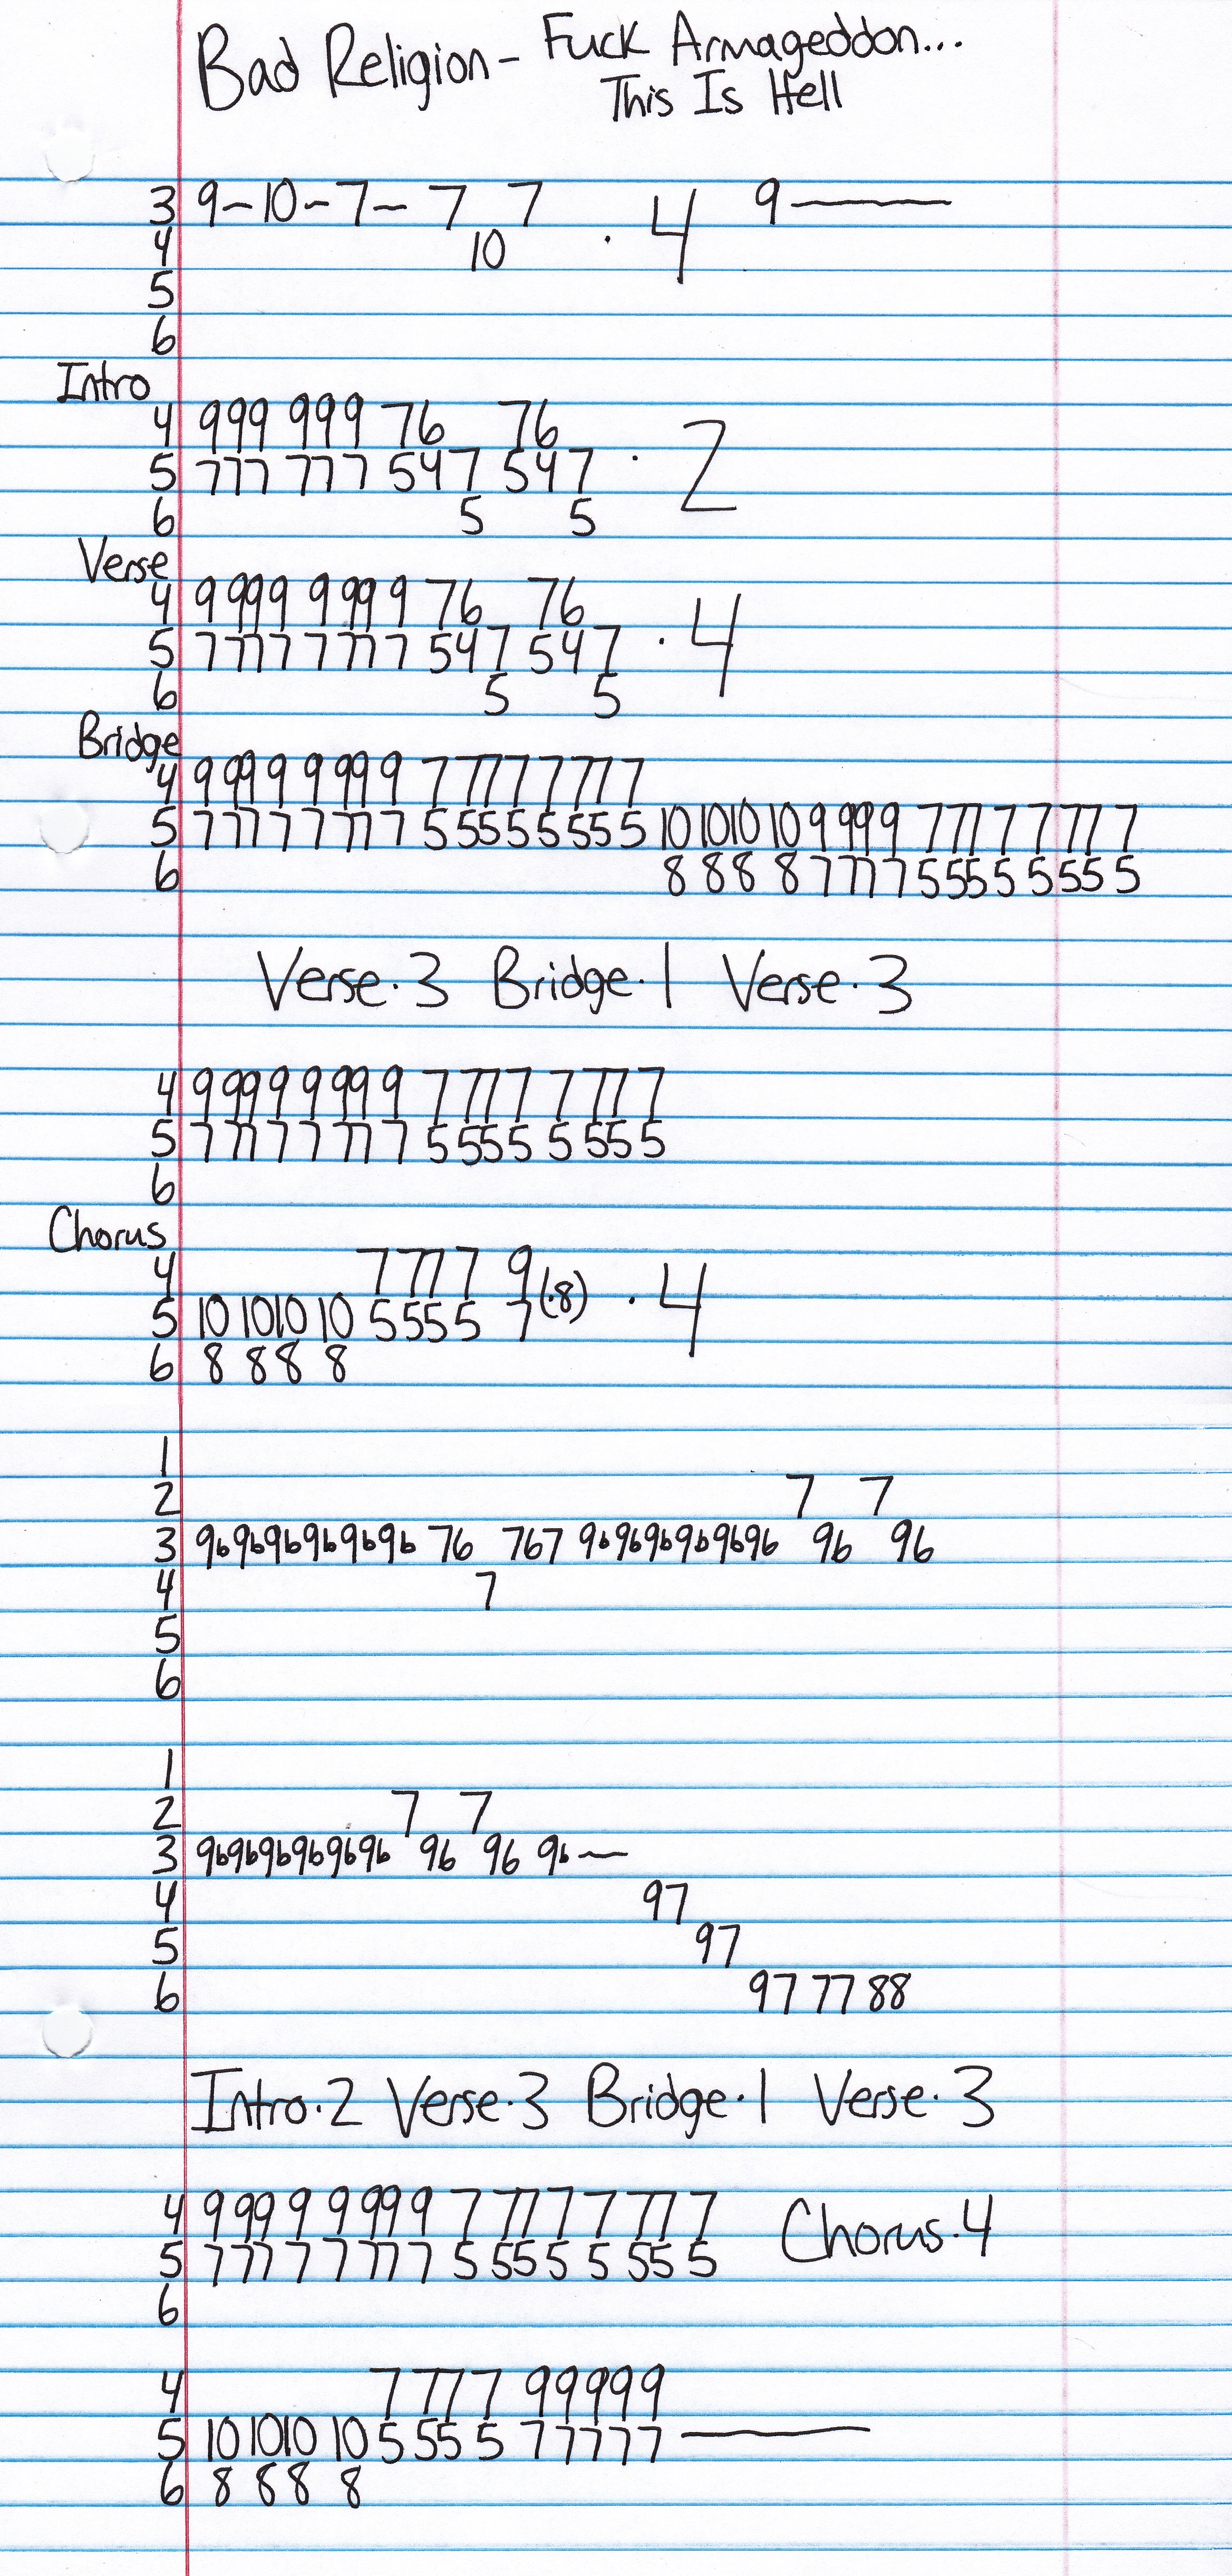 Bad Religion - Fuck Armageddon...
This Is Hell
3 9-10-7- 7 7 . 4 9——
4 10
5
6
Intro
4 999 999 76 76
5 777 777 547 547 . 2
6 5 5
Verse
4 9 999 9 999 9 76 76
5 7 777 7 777 7 547 547 . 4
6 5 5
Bridge
4 9 999 9 999 9 7 777 7 777 7
5 7 777 7 777 7 5 555 5 555 5 10 1010 10 9 999 7 777 7 777 7
6 8 88 8 7 777 5 555 5 555 5
Verse.3 Bridge.1 Verse.3
4 9 999 9 999 9 7 777 7 777 7
5 7 777 7 777 7 5 555 5 555 5
6
Chorus
4 7 777 9
5 10 1010 10 5 555 7 (.8) . 4
6 8 88 8
1
2 7 7
3 9b9b9b9b9b9b 76 767 9b9b9b9b9b96 96 96
4 7
5
6
1
2 7 7
3 9b9b9b9b9b96 96 96 9b—
4 97
5 97
6 97 77 88
Intro.2 Verse.3 Bridge.1 Verse.3
4 9 99 9 9 99 9 7 777 7 777 7 Chorus.4
5 7 77 7 7 77 7 5 555 5 555 5
6
4 7 77 7 99999
5 10 1010 10 5 55 5 77777 ——
6 8 88 8